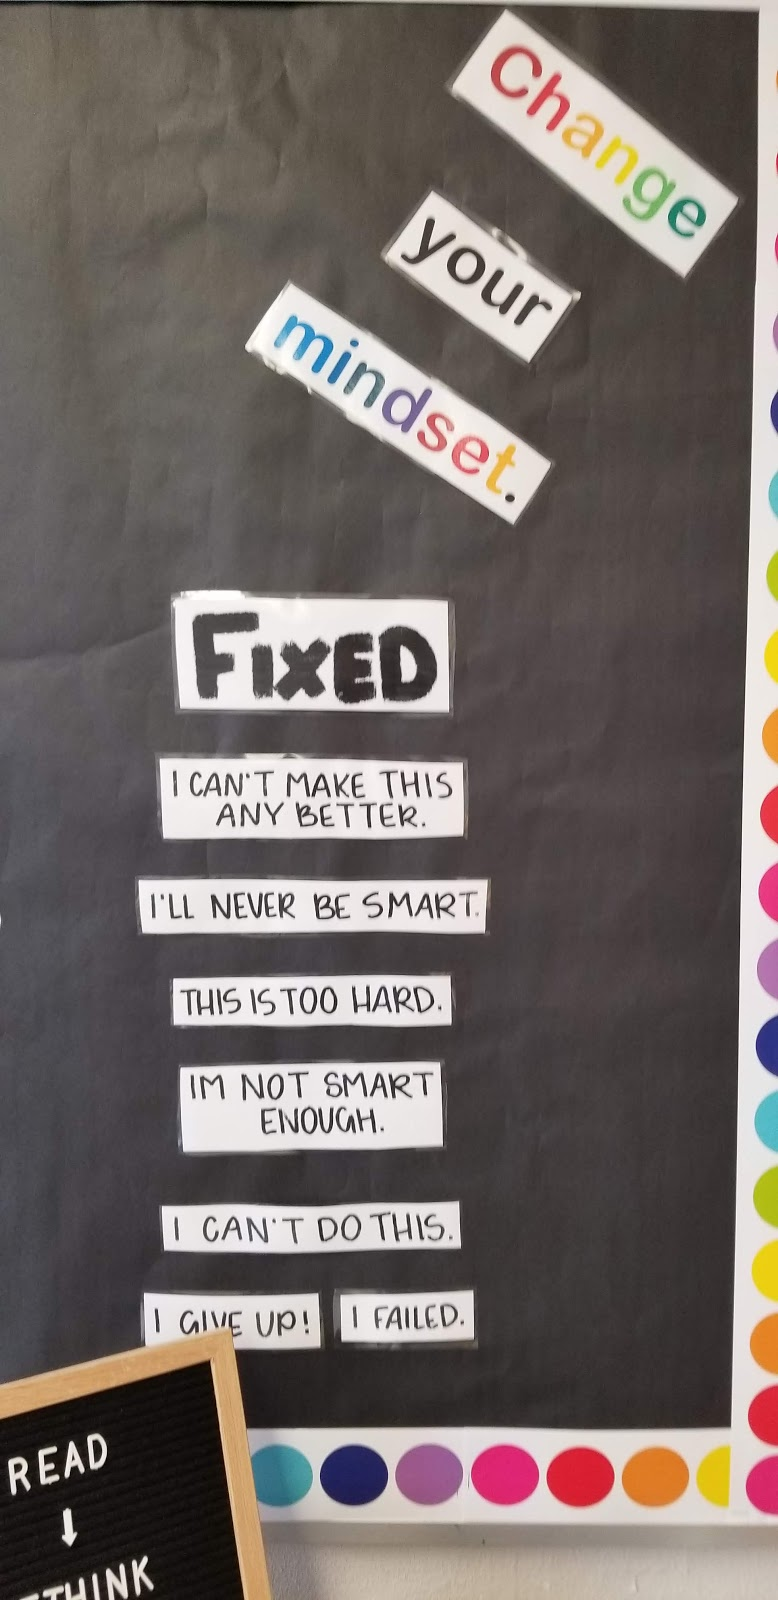 Change
your
mindset.
FIXED
I CAN'T MAKE THIS
ANY BETTER.
I'LL NEVER BE SMART.
THIS IS TOO HARD.
IM NOT SMART
ENOUGH.
I CAN'T DO THIS.
I GIVE UP!
I FAILED.
READ
↓